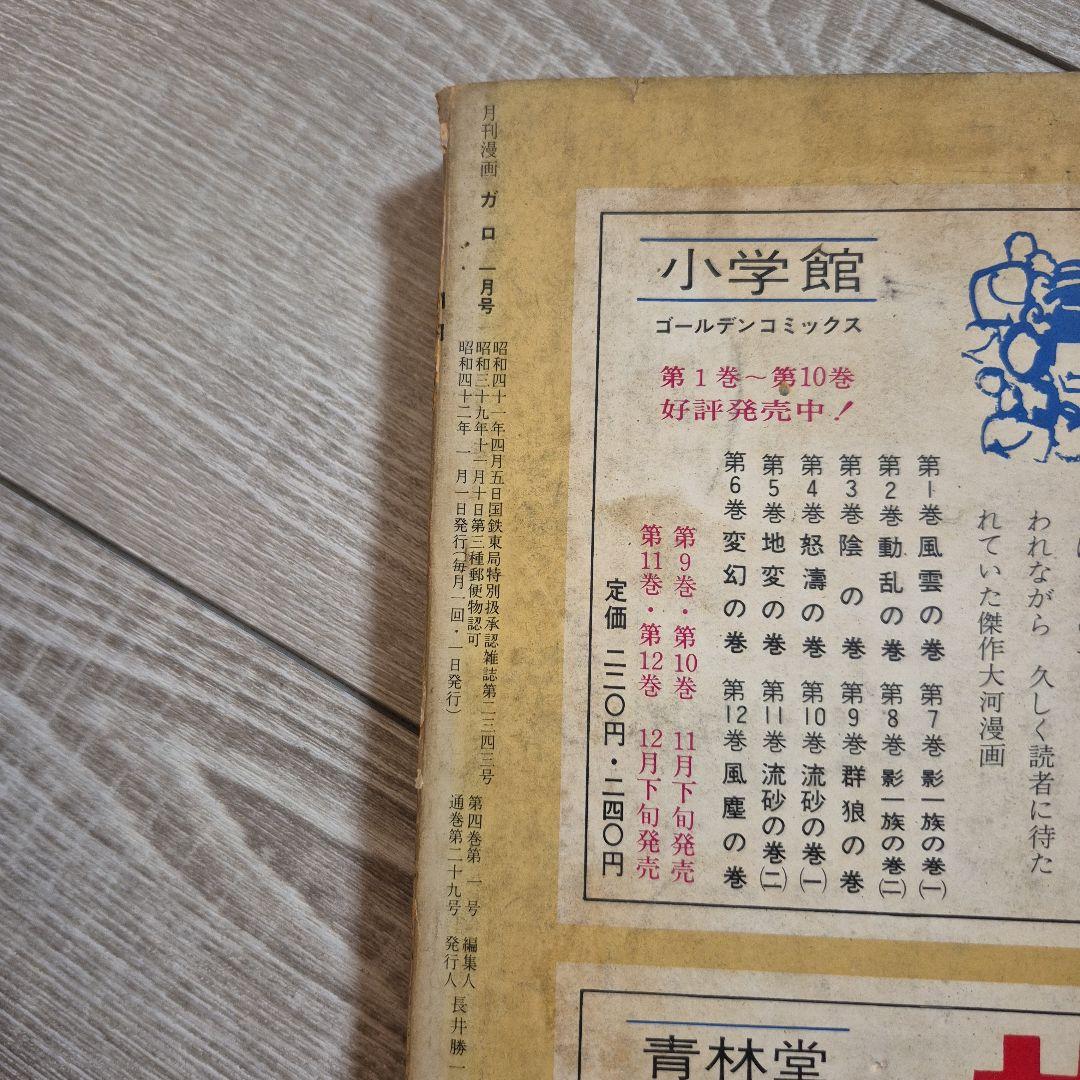 月刊漫画 ガロ 一月号
昭和四十一年四月五日国鉄東局特別扱承認雑誌第二三四三号
昭和三十九年十一月十日第三種郵便物認可
昭和四十二年一月一日発行（毎月一回・一日発行）
第四巻第一号
通巻第二十九号
編集人
発行人
長井勝一
小学館
ゴールデンコミックス
第1巻〜第10巻
好評発売中！
第1巻風雲の巻
第2巻動乱の巻
第3巻陰の巻
第4巻怒濤の巻
第5巻地変の巻
第6巻変幻の巻
第7巻影一族の巻㈠
第8巻影一族の巻㈡
第9巻群狼の巻
第10巻流砂の巻㈠
第11巻流砂の巻㈡
第12巻風塵の巻
第9巻・第10巻 11月下旬発売
第11巻・第12巻 12月下旬発売
定価 二二〇円・二四〇円
われながら 久しく読者に待た
れていた傑作大河漫画
青林堂